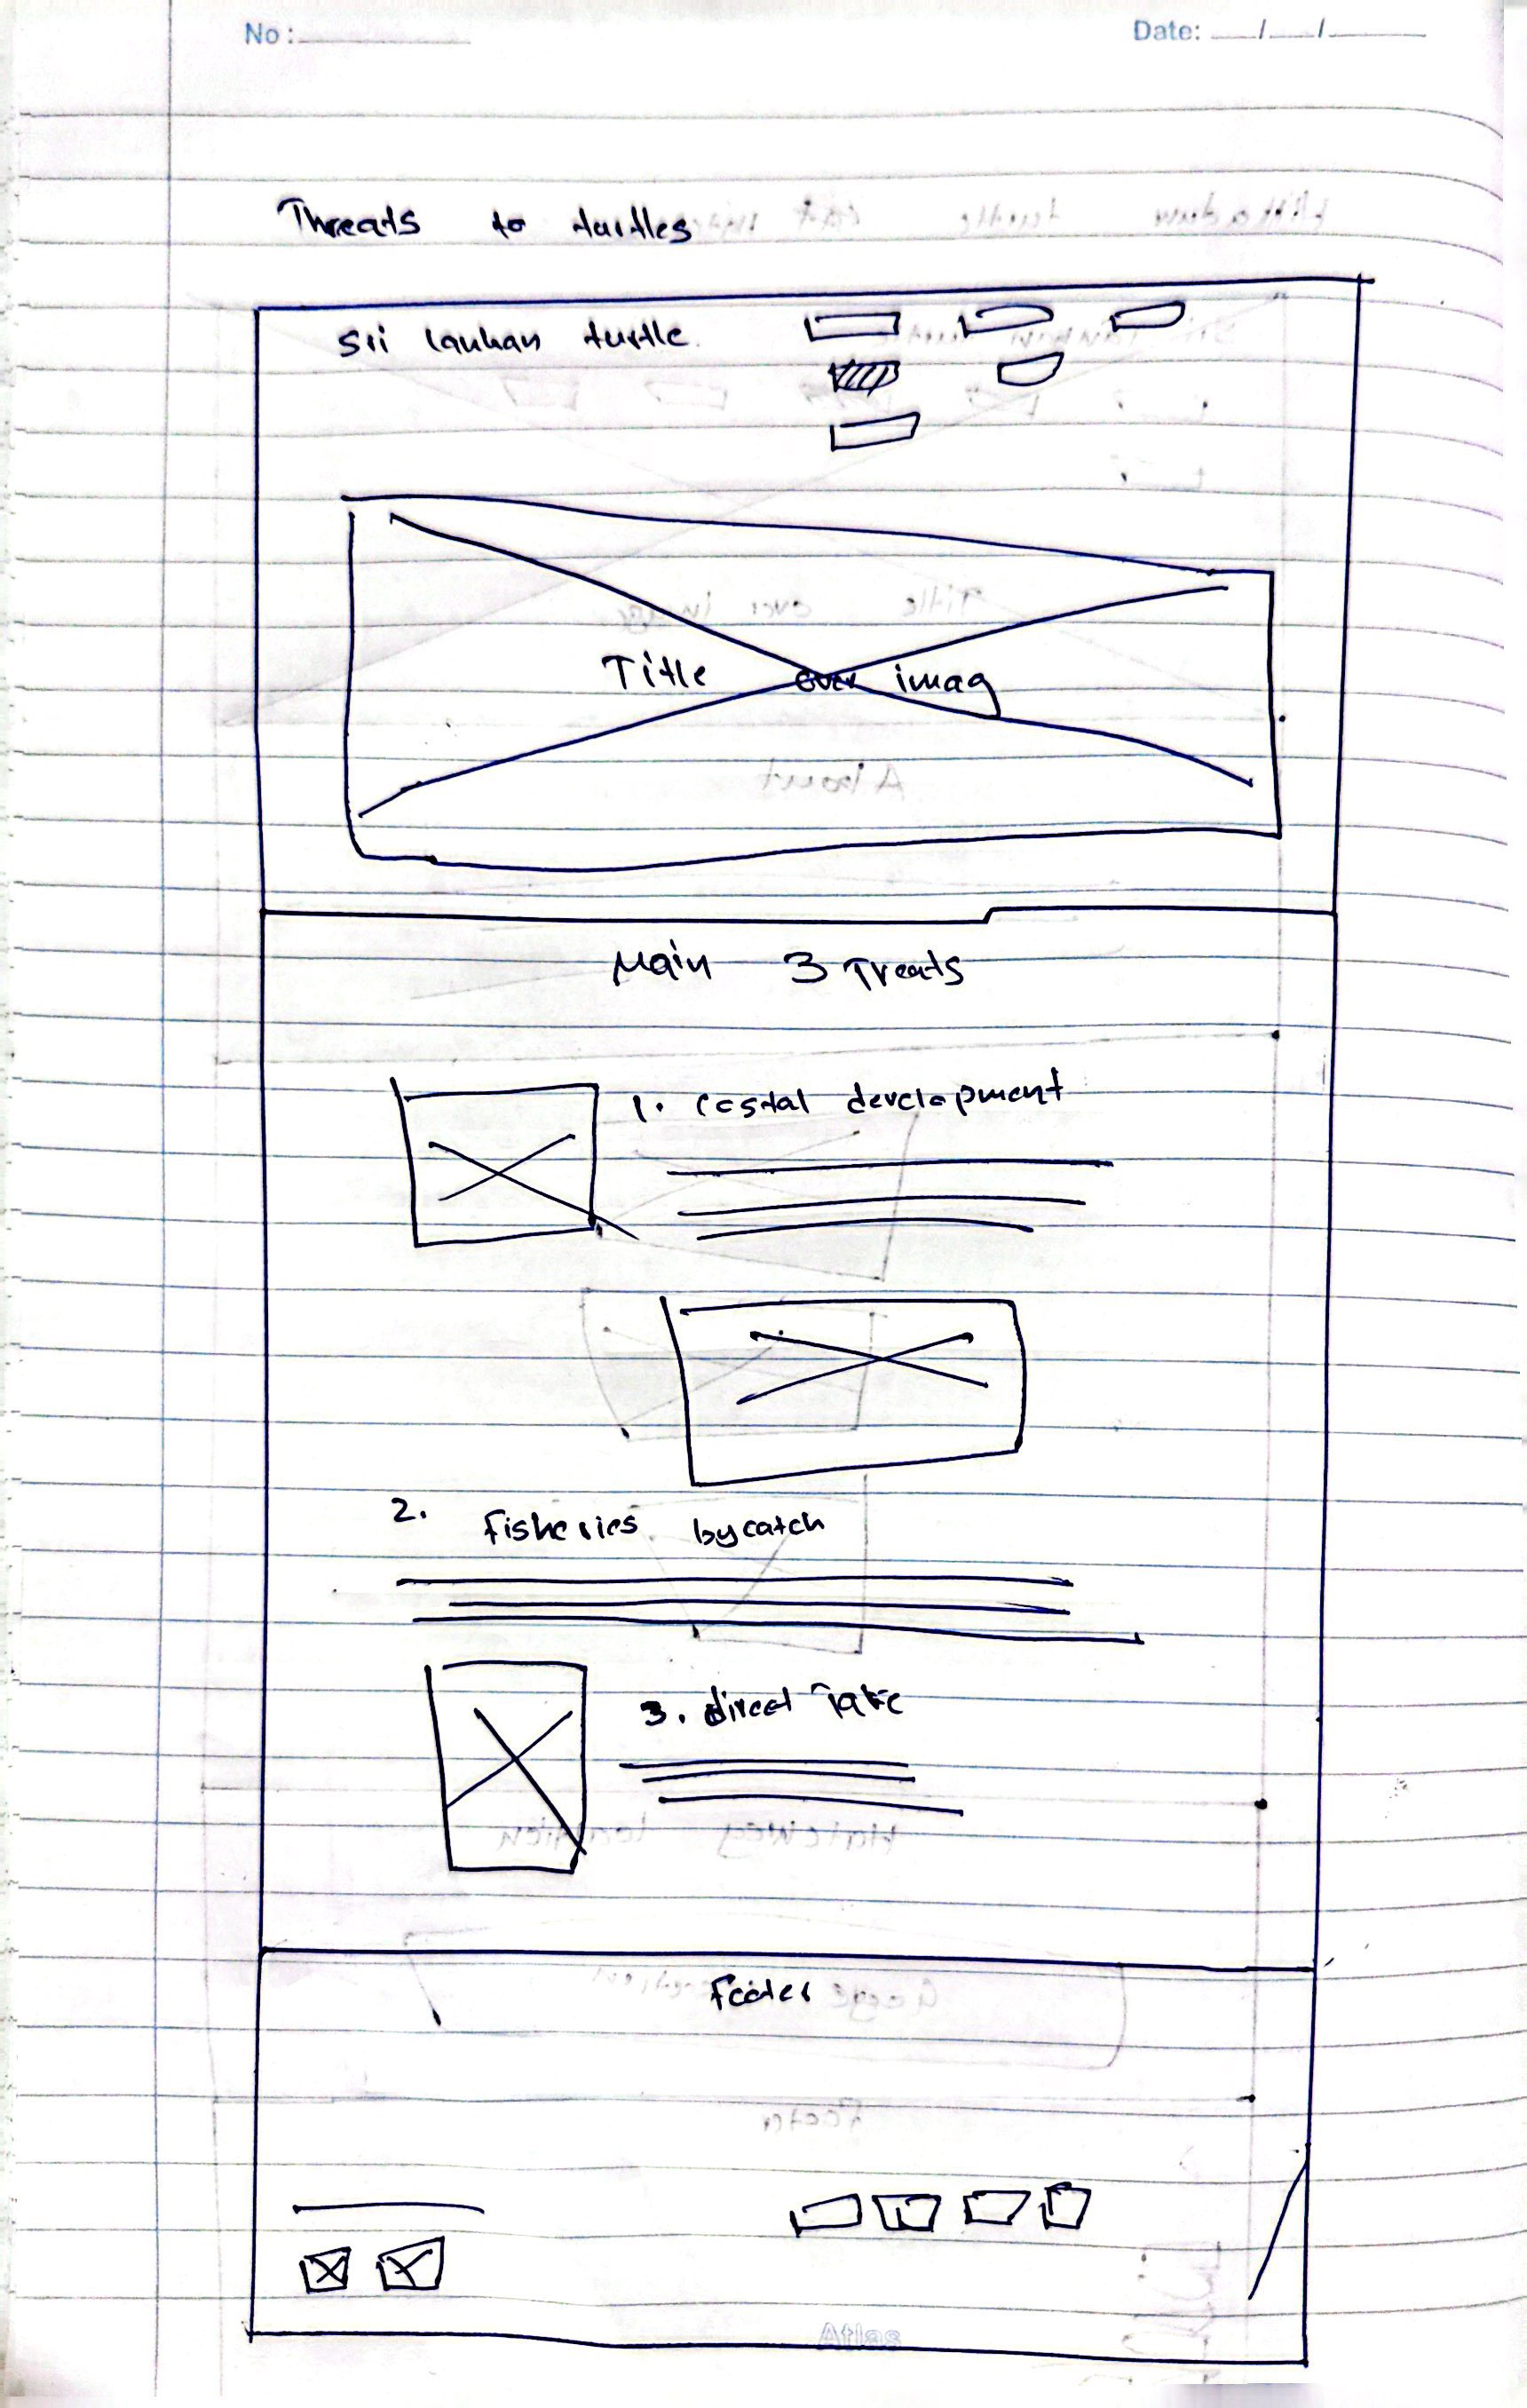 No :
Date: / /
Threats to turtles
Sri lankan turtle.
Title over imag
Main 3 Treats
1. costal development
2. fisheries bycatch
3. direct Take
Footer
Atlas